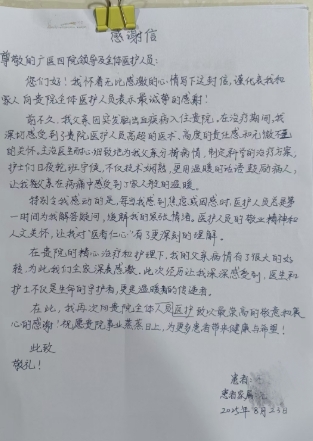 感谢信
尊敬的广医四院领导及全体医护人员:
您们好!我怀着无比感激的心情写下这封信,谨代表我和
家人向贵院全体医护人员表示最诚挚的感谢!
前不久,我父亲因突发脑出血疾病入住贵院。在治疗期间,我
深切感受到了贵院医护人员高超的医术、高度的责任感和无微不至
的关怀。主治医生耐心细致地为我父亲分析病情,制定科学的治疗方案。
护士们日夜轮班守候,不仅技术娴熟,更用温暖的话语鼓励病人,
让我父亲在病痛中感受到了家人般的温暖。
特别令我感动的是,每当我感到焦虑或困惑时,医护人员总是第
一时间为我解答疑问,缓解我的紧张情绪。医护人员的敬业精神和
人文关怀,让我对"医者仁心"有了更深刻的理解。
在贵院的精心治疗和护理下,我的父亲病情有了很大的好
转,为此我们全家深表感激。此次经历让我深深感受到,医生和
护士不仅是生命的守护者,更是温暖的传递者。
在此,我再次向贵院全体人员医护致以最崇高的敬意和衷
心的感谢!祝愿贵院事业蒸蒸日上,为更多患者带来健康与希望!
此致
敬礼!
患者:
患者家属:
2025年8月23日